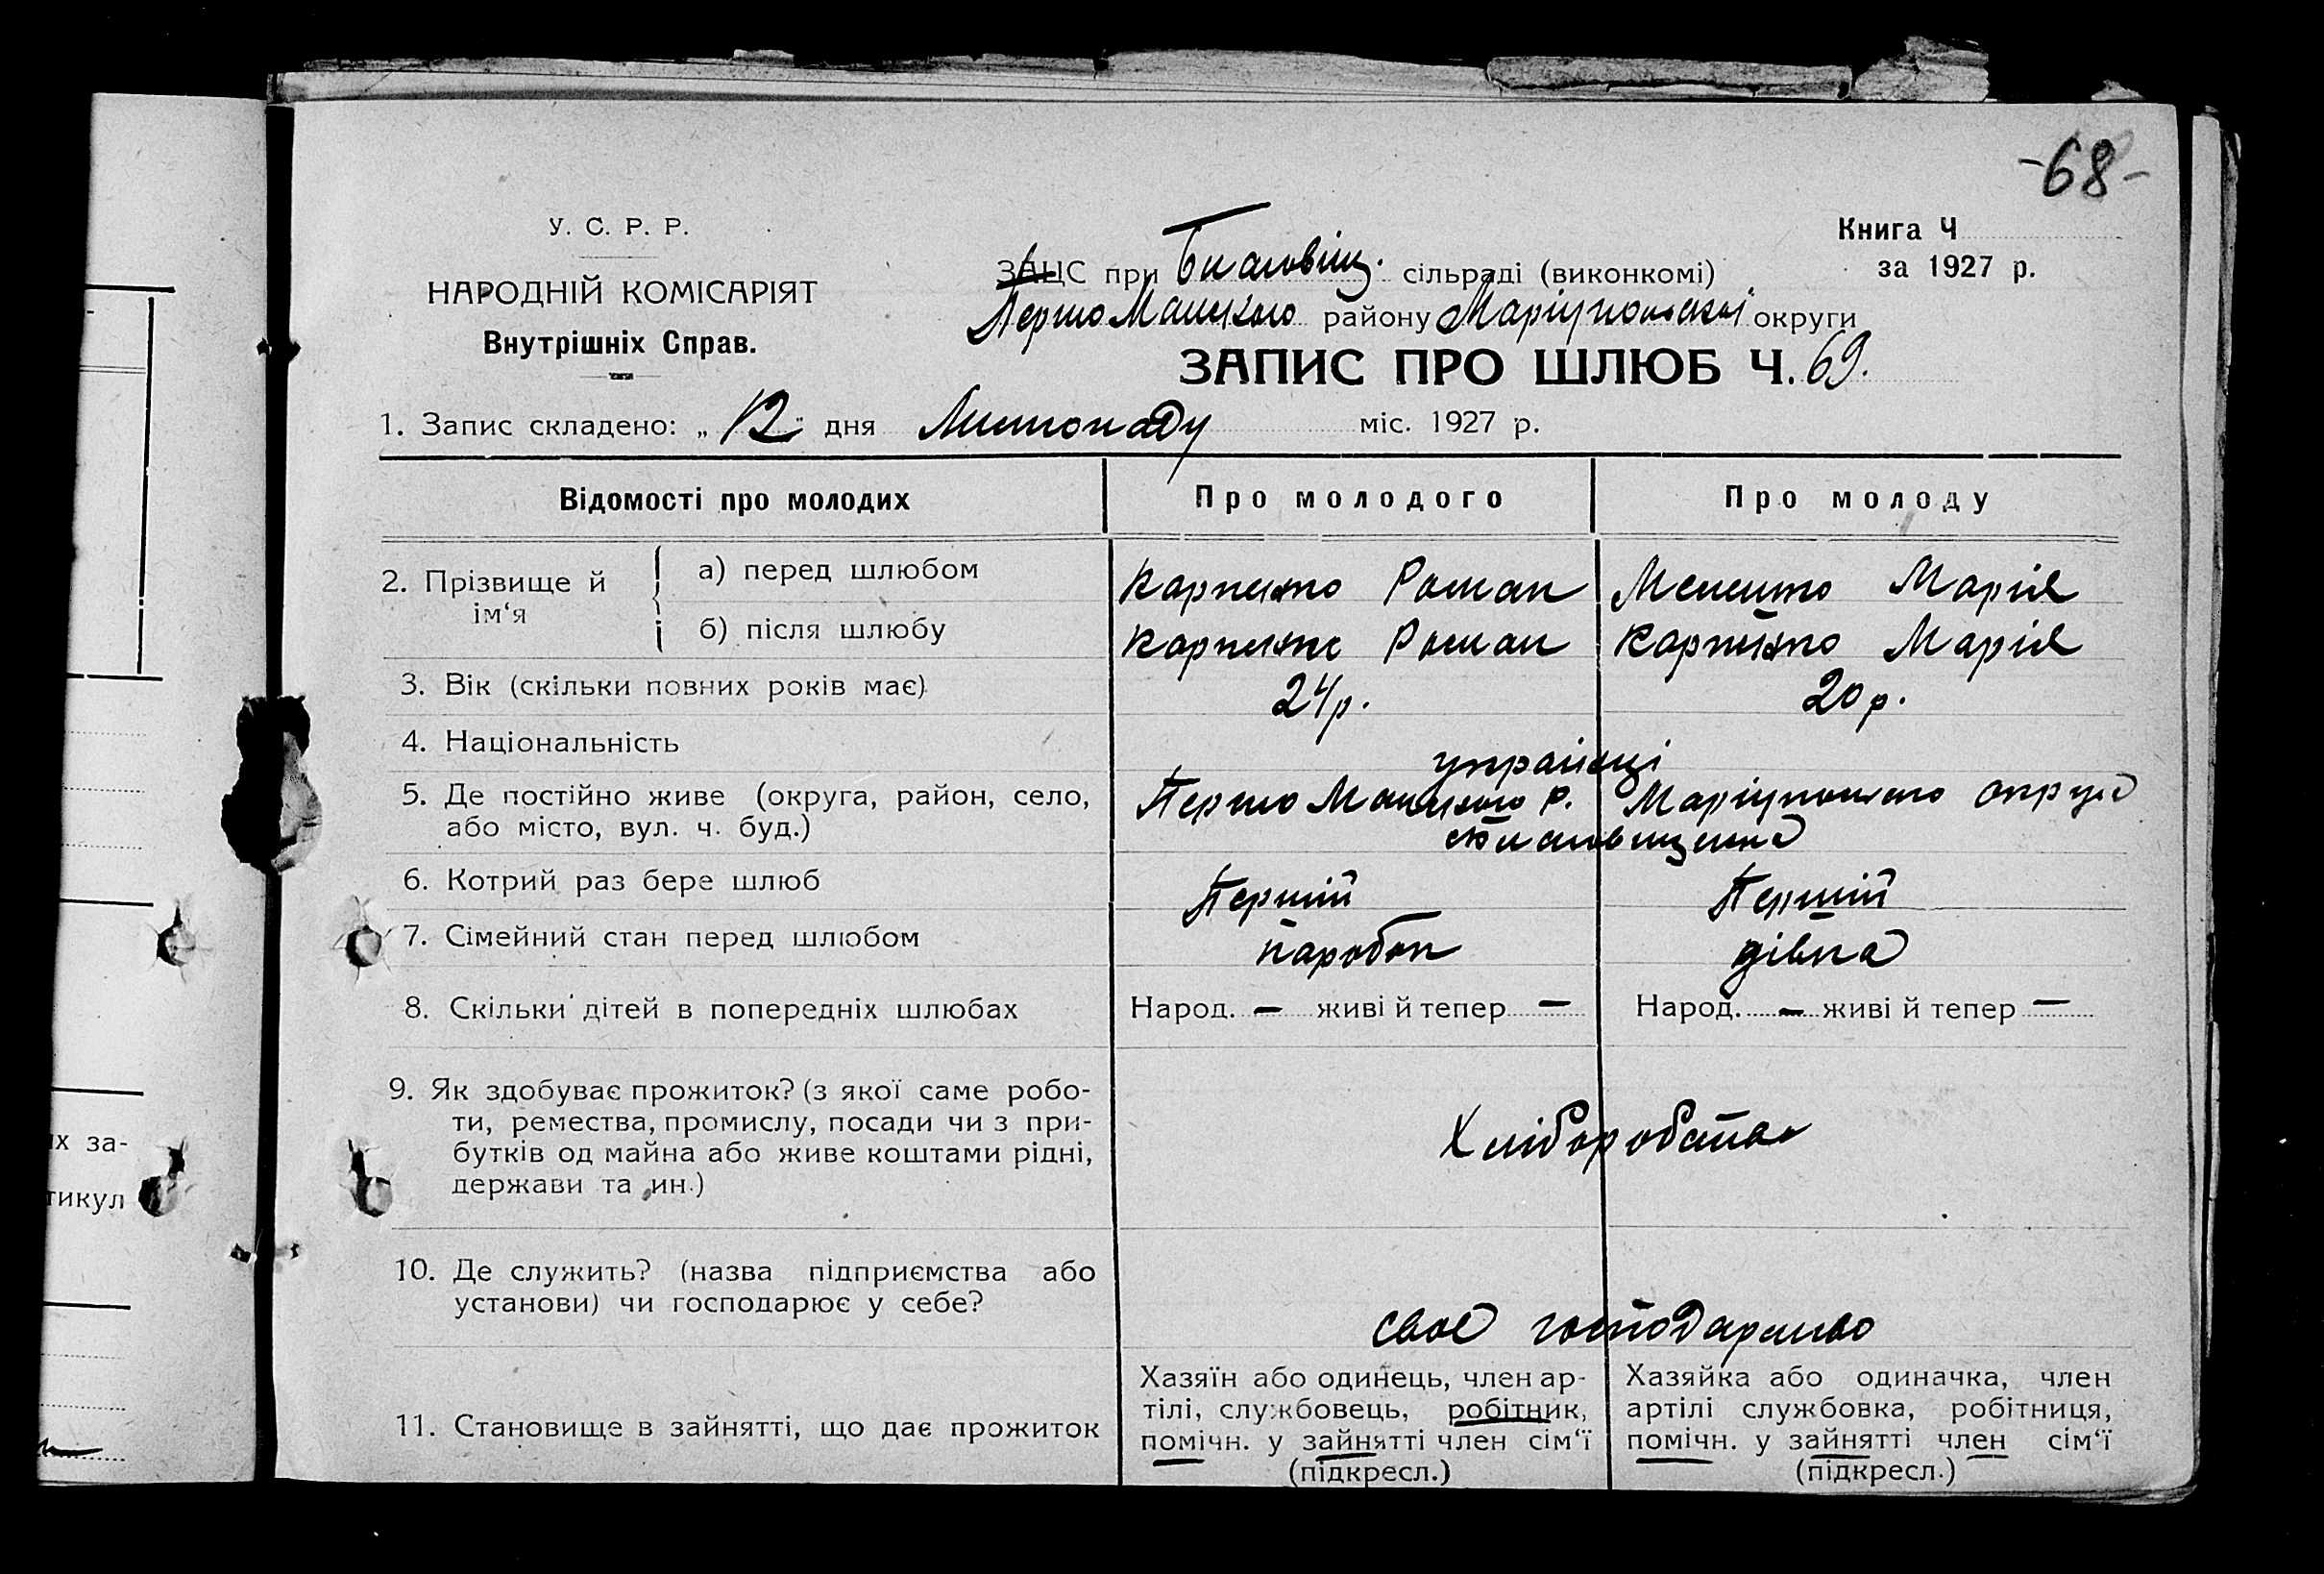 -68-
У. С. Р. Р.
НАРОДНІЙ КОМІСАРІЯТ
Внутрішніх Справ.
Книга Ч
за 1927 р.
ЗАЦС при сільраді (виконкомі)
району Маріупольської округи
ЗАПИС ПРО ШЛЮБ Ч. 69.
1. Запис складено: „12" дня Листопаду міс. 1927 р.
Відомості про молодих Про молодого Про молоду
2. Прізвище й ім‘я
а) перед шлюбом Роман Марія
б) після шлюбу Роман Марія
3. Вік (скільки повних років має) 24р. 20р.
4. Національність українці
5. Де постійно живе (округа, район, село,
або місто, вул. ч. буд.)
6. Котрий раз бере шлюб Перший Перший
7. Сімейний стан перед шлюбом паробок дівка
8. Скільки дітей в попередніх шлюбах Народ. — живі й тепер — Народ. — живі й тепер —
9. Як здобуває прожиток? (з якої саме робо-
ти, ремества, промислу, посади чи з при-
бутків од майна або живе коштами рідні,
держави та ин.)
10. Де служить? (назва підприємства або
установи) чи господарює у себе?
своє господарство
11. Становище в зайнятті, що дає прожиток
Хазяїн або одинець, член ар-
тілі, службовець, робітник,
помічн. у зайнятті член сім‘ї
(підкресл.)
Хазяйка або одиначка, член
артілі службовка, робітниця,
помічн. у зайнятті член сім‘ї
(підкресл.)
х за-
тикул